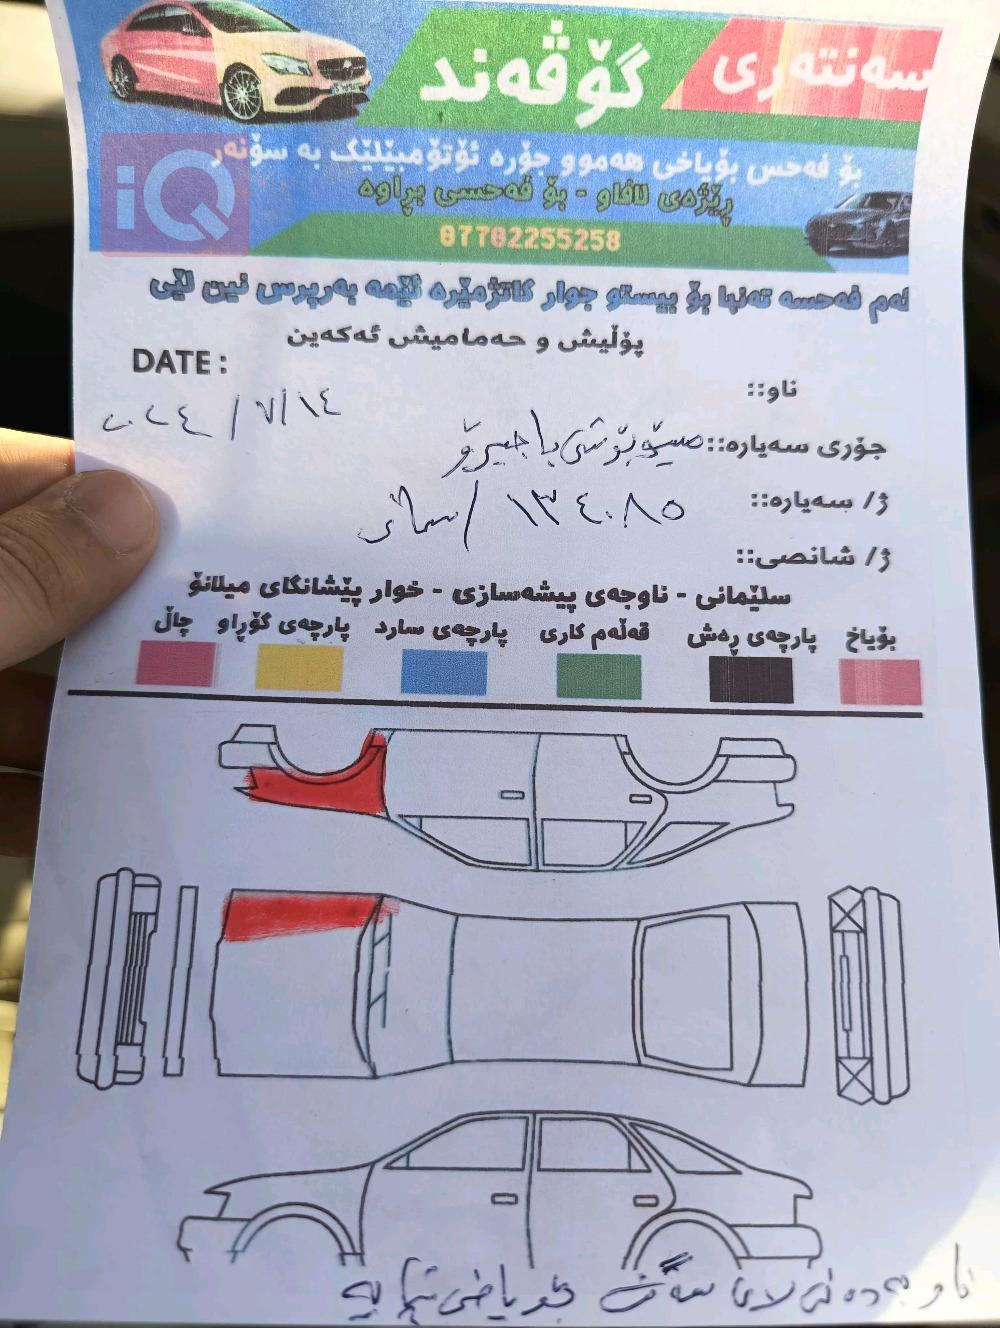 سەنتەری گۆڤەند
بۆ فەحس بۆیاخی هەموو جۆرە ئۆتۆمبێلێک بە سۆنەر
iQ
ڕێژەی لافاو - بۆ فەحسی بڕاوە
07702255258
ئەم فەحسە تەنها بۆ بیستو چوار کاتژمێرە ئێمە بەرپرس نین لێی
پۆڵیش و حەمامیش ئەکەین
DATE :
ناو::
٢٠٢٤ / ٧/١٤
جۆری سەیارە:: میتسۆبۆشی باجیرۆ
ژ/ سەیارە:: ١٣٤٠٨٥ /
ژ/ شانصی::
سلێمانی - ناوچەی پیشەسازی - خوار پێشانگای میلانۆ
بۆیاخ پارچەی ڕەش قەڵەم کاری پارچەی سارد پارچەی گۆڕاو چاڵ
ناو بەدەنی لای بۆیاخی تیایە